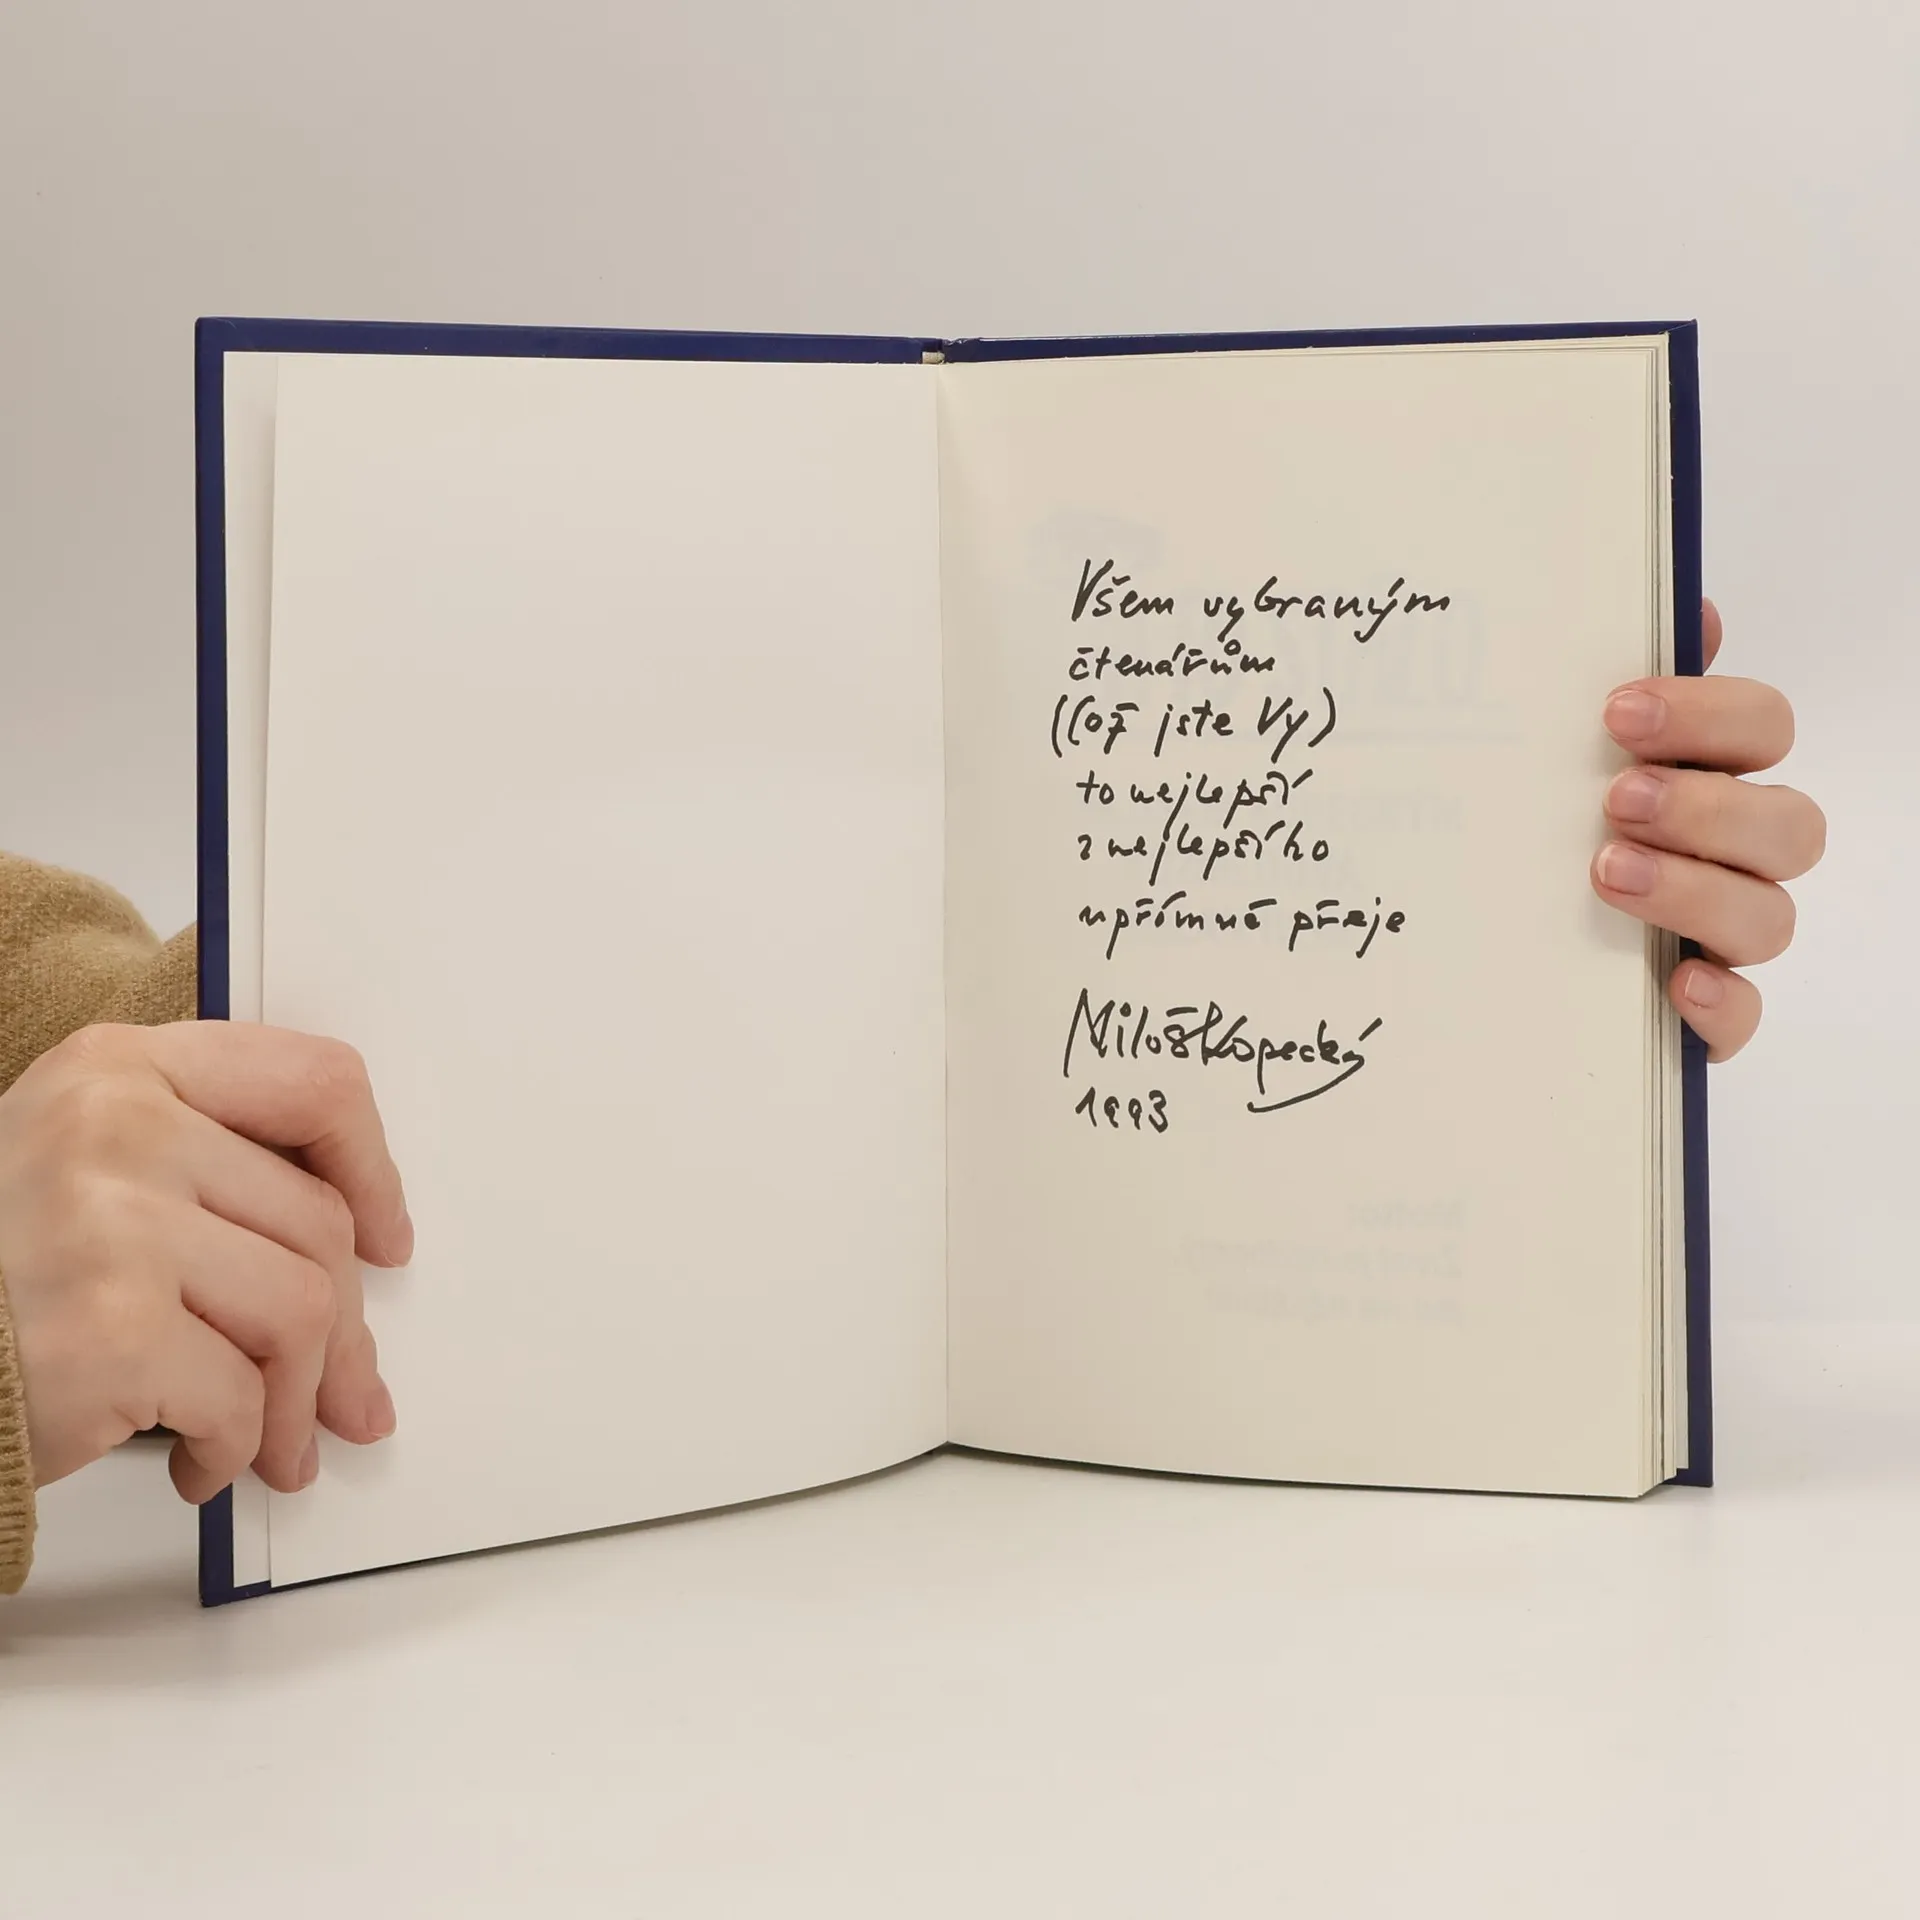 Všem vybraným
čtenářům
(což jste Vy)
to nejlepší
z nejlepšího
upřímně přeje
Miloš Kopecký
1993